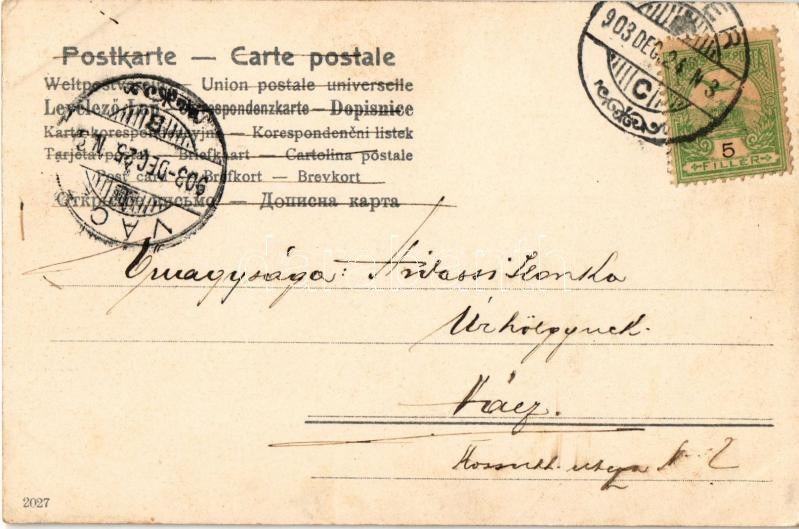 Postkarte — Carte postale
Weltpostverein — Union postale universelle
Levelező-Lap — Correspondenzkarte — Dopisnice
Karta korespondencyjna — Korespondenční listek
Tarjeta postal — Briefkaart — Cartolina postale
Post card — Brefkort — Brevkort
Открытое письмо — Дописна карта
903 DEC. 24 N 3
C
5
FILLÉR
VÁC
903 DEC. 25 N
B
Őnagysága: Ilonka
Úrhölgynek.
Vácz.
Kossuth utcza N 2
2027